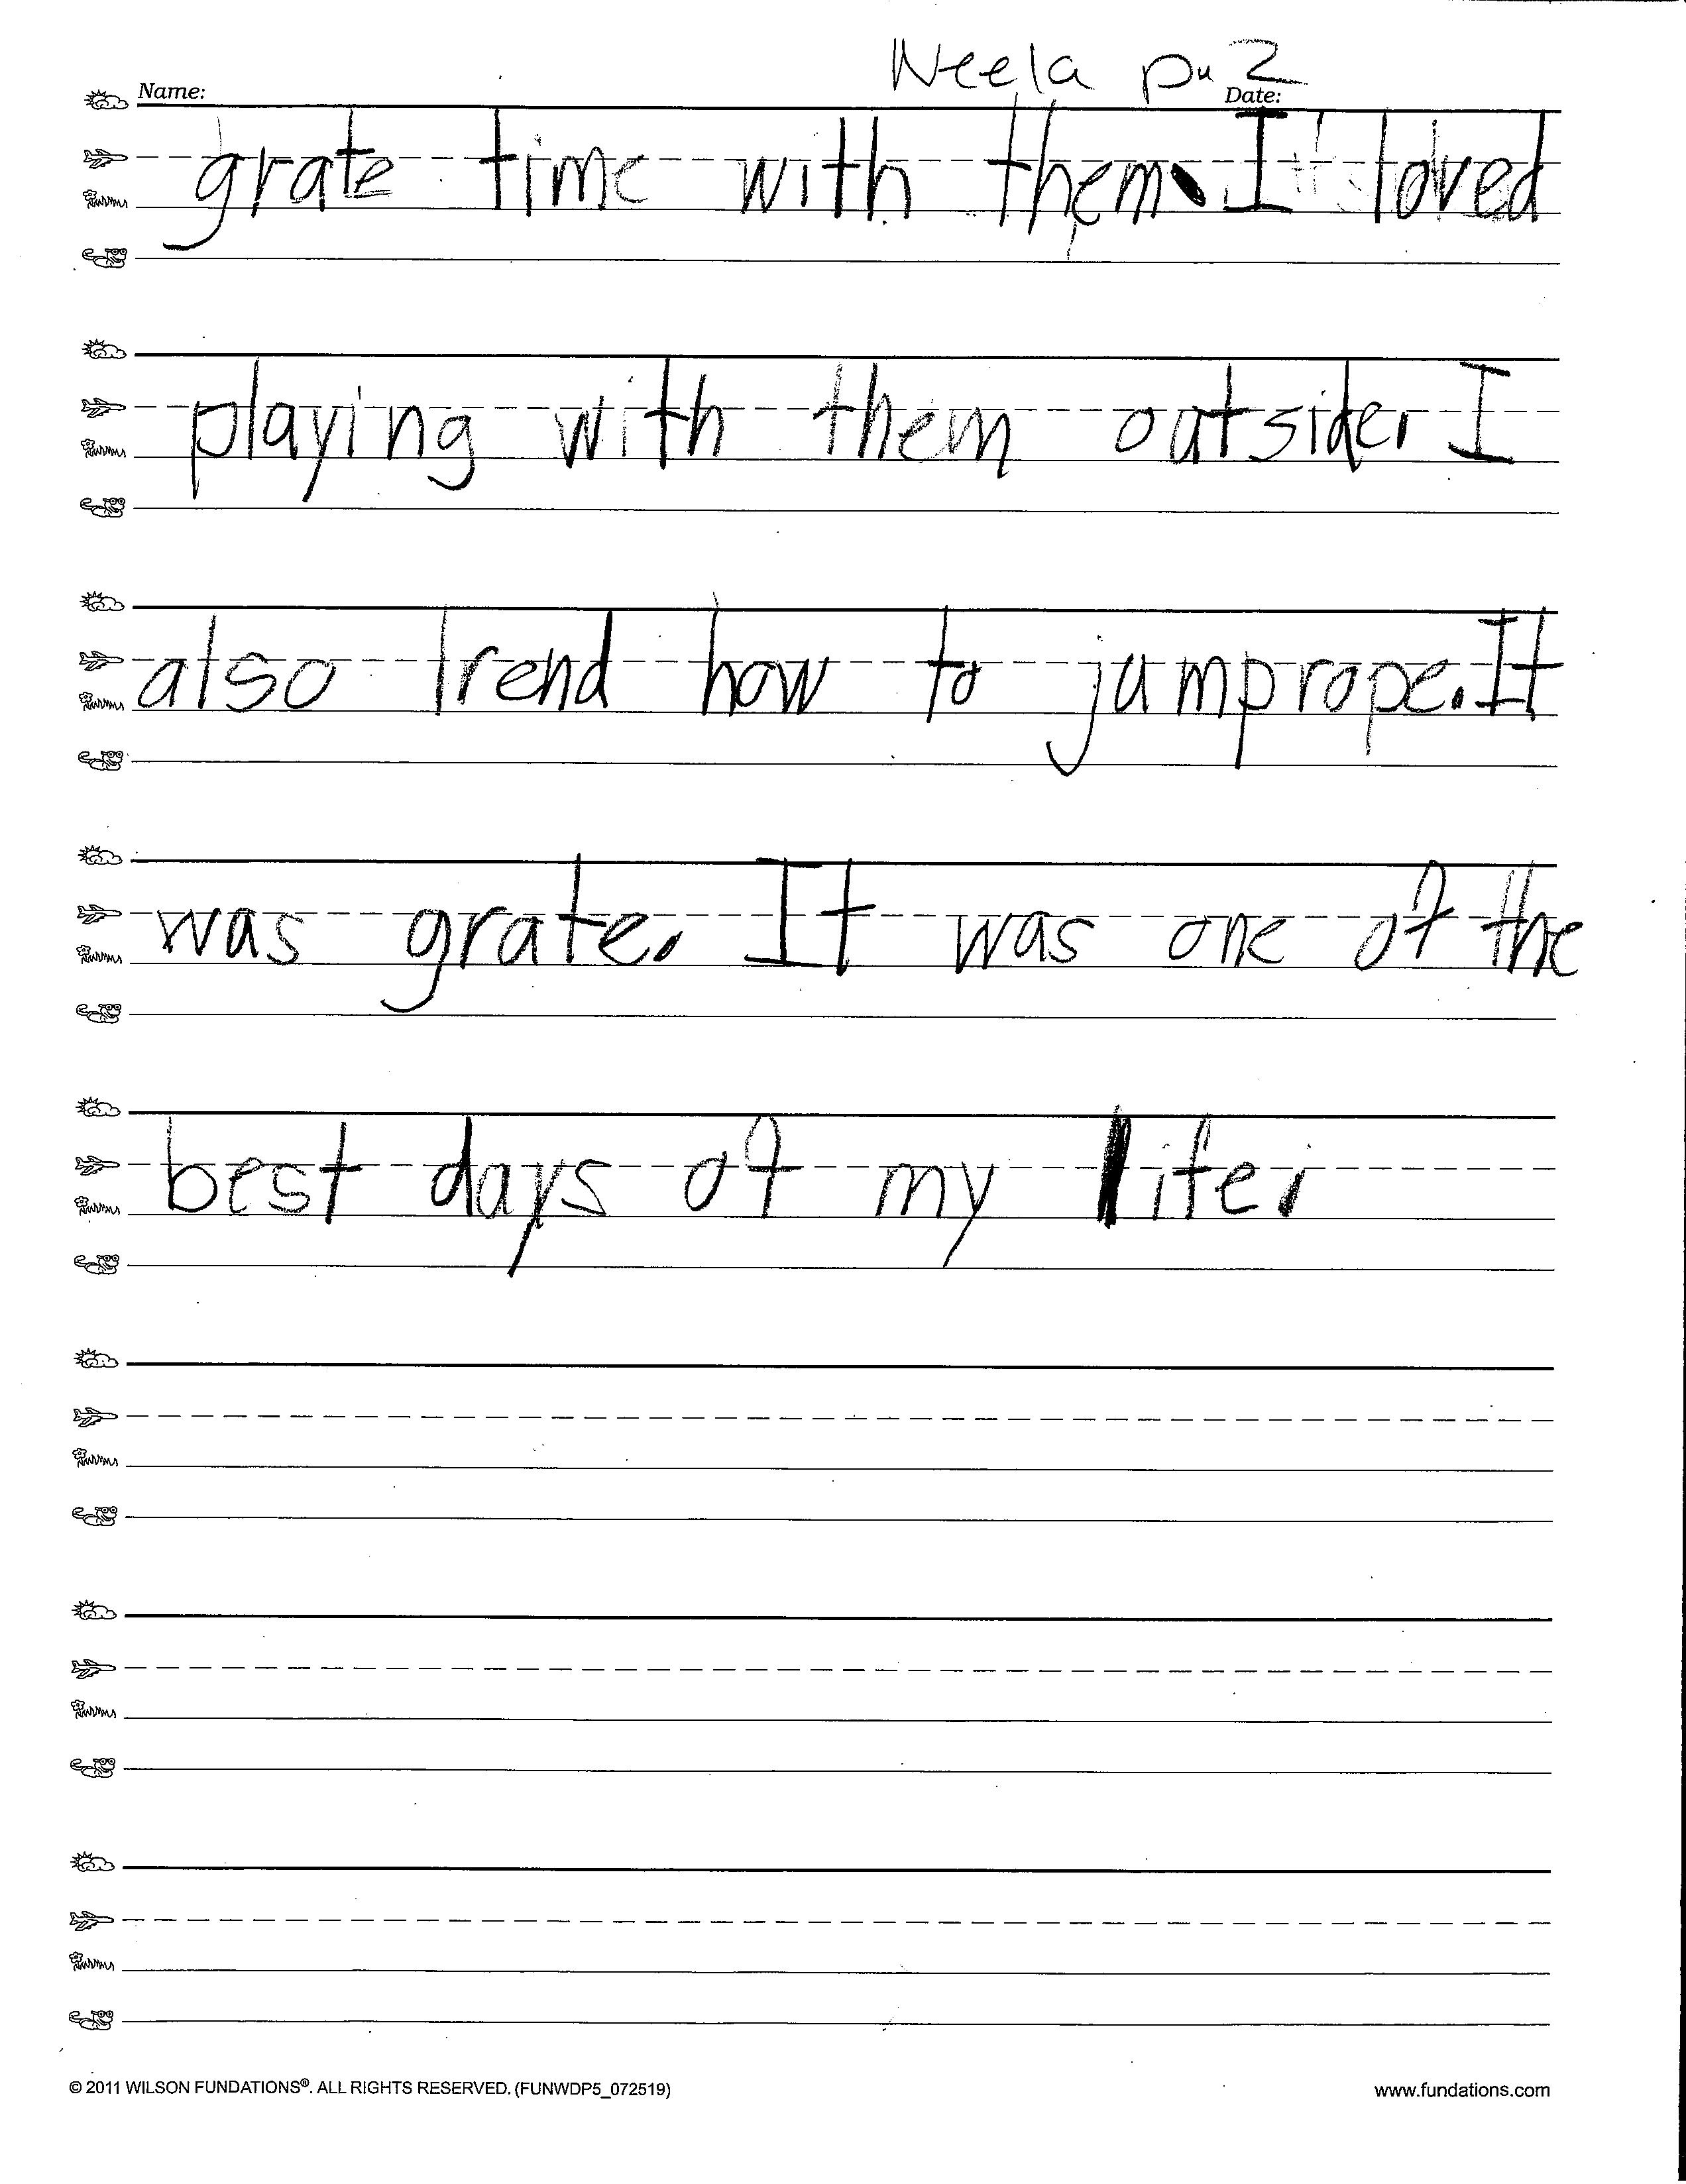 Neela p. 2
Name: Date:
grate time with them. I loved
playing with them outside. I
also lrend how to jumprope. It
was grate. It was one of the
best days of my life.
© 2011 WILSON FUNDATIONS®. ALL RIGHTS RESERVED. (FUNWDP5_072519) www.fundations.com